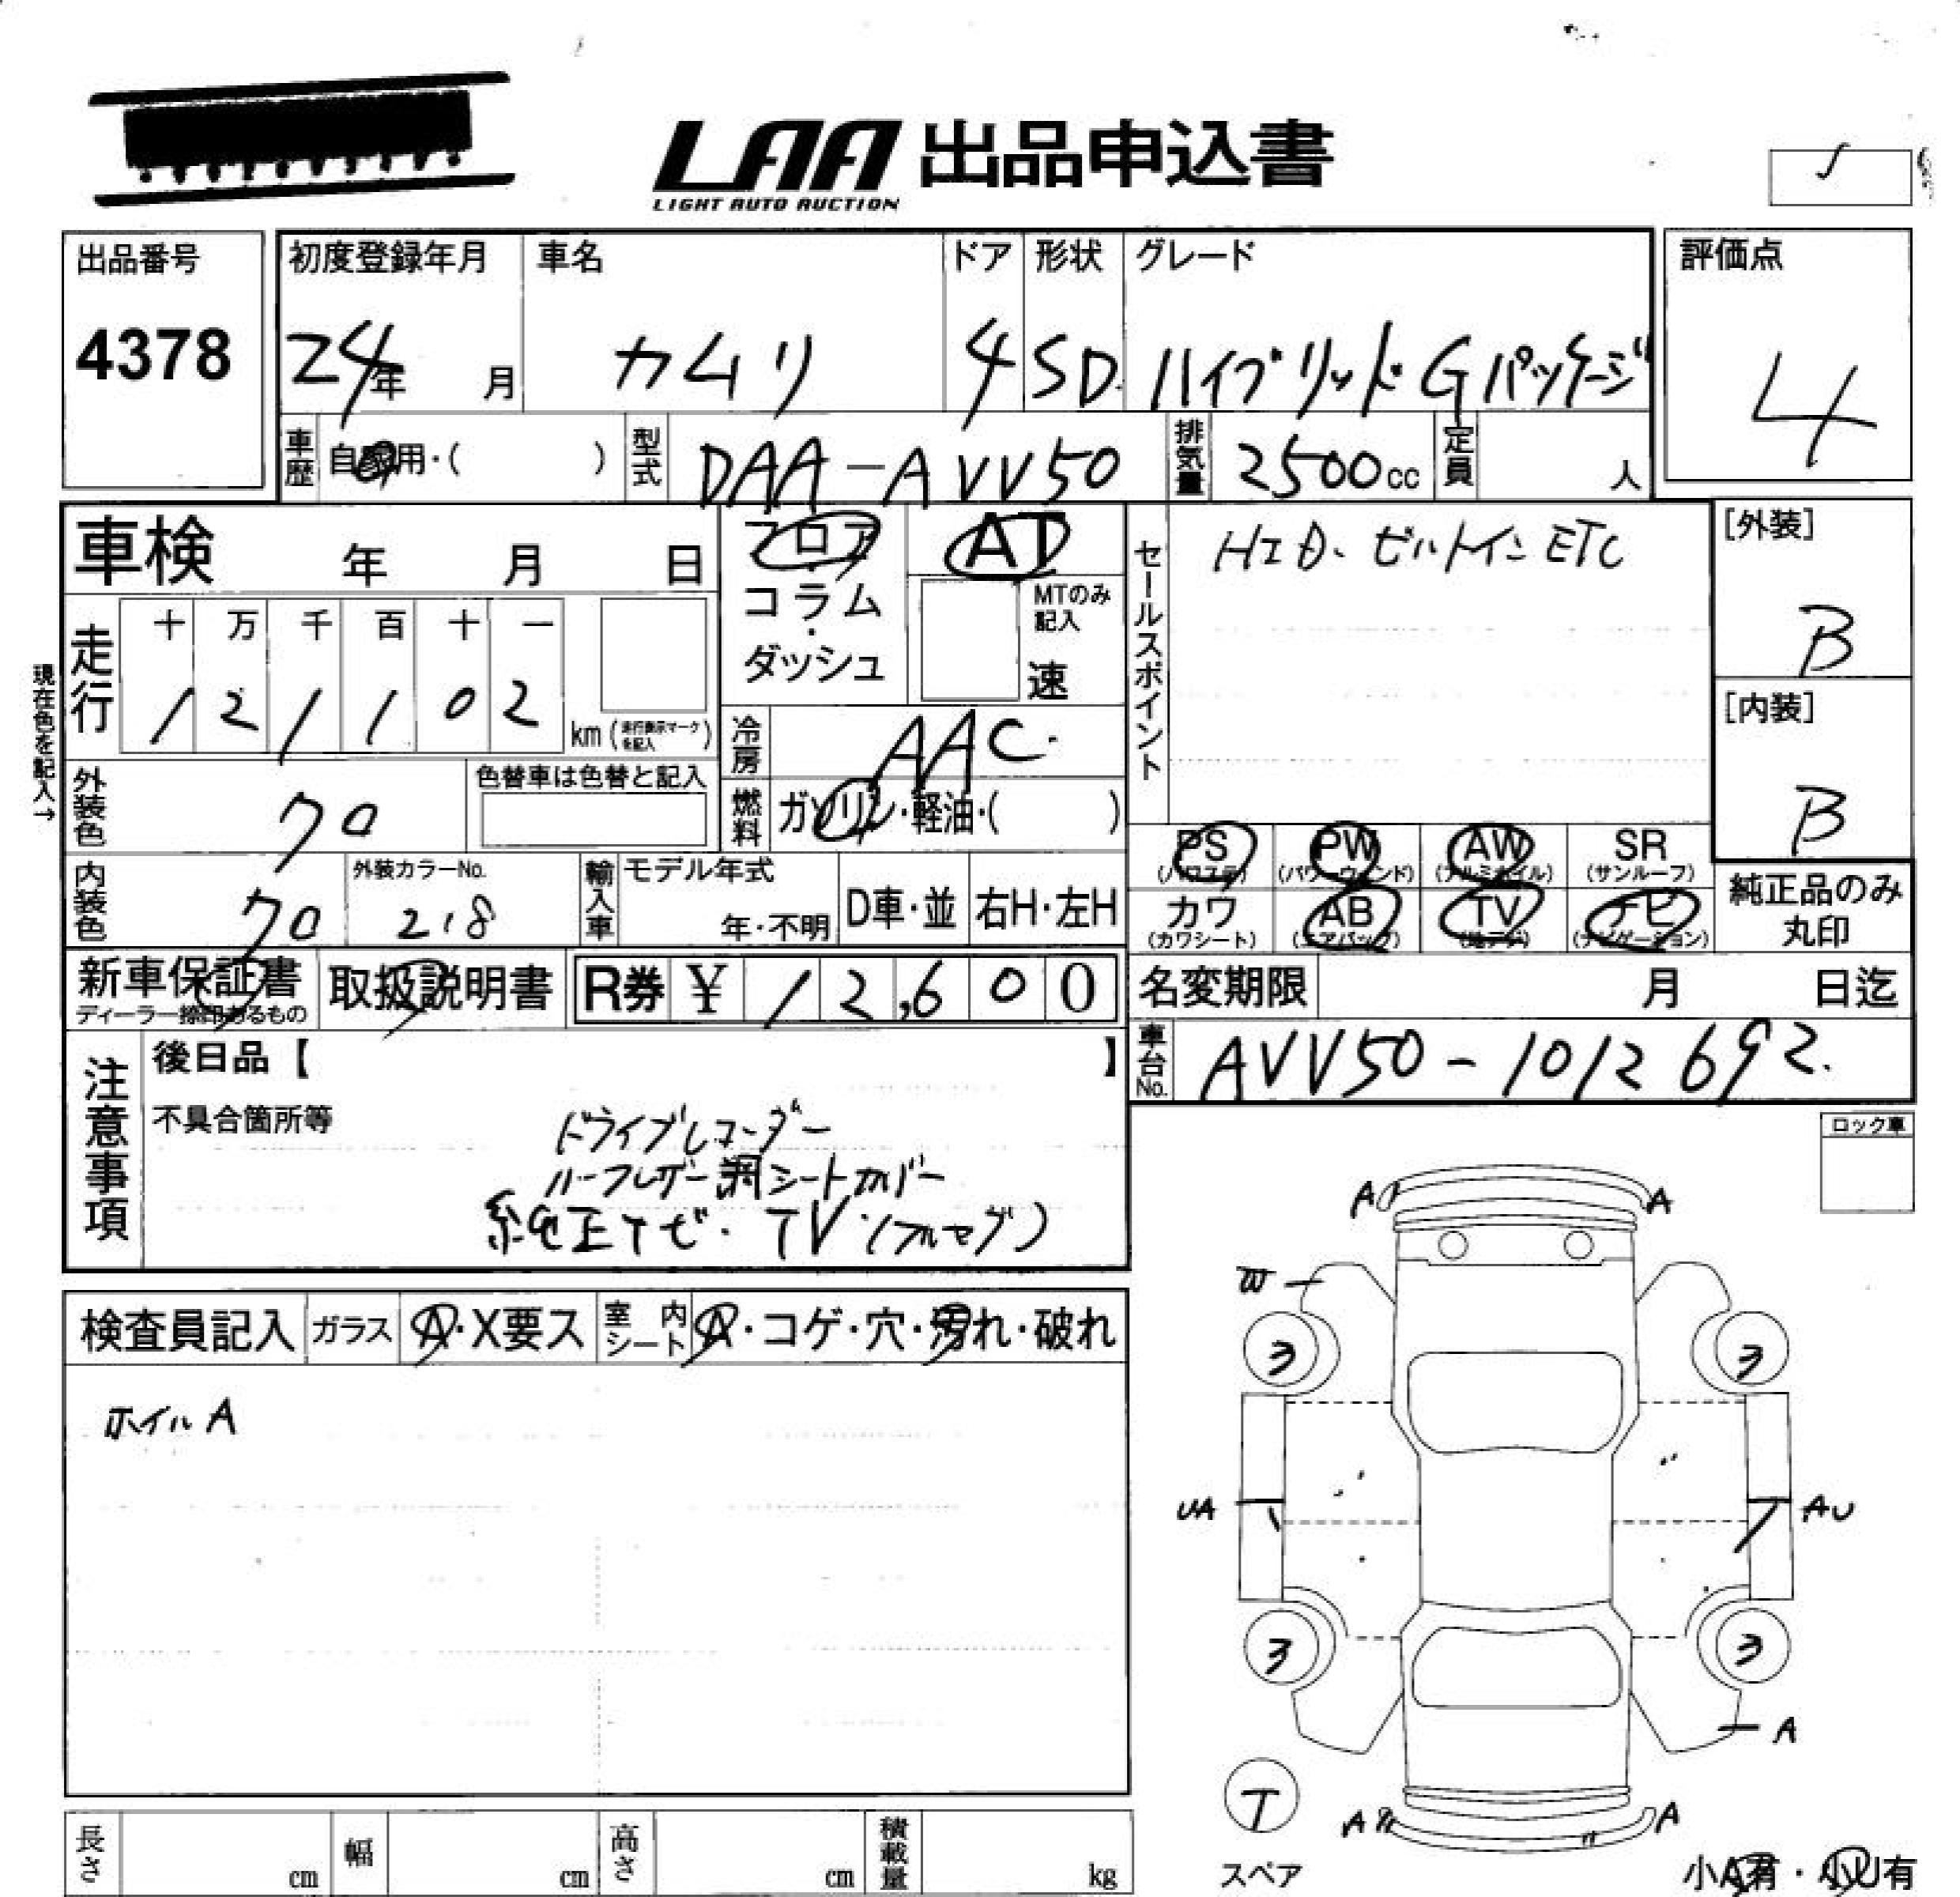 LAA 出品申込書
LIGHT AUTO AUCTION
出品番号
4378
初度登録年月
24年 月
車名
カムリ
ドア
4
形状
SD
グレード
ハイブリッド Gパッケージ
評価点
4
車歴
自家用・( )
型式
DAA-AVV50
排気量
2500cc
定員
人
車検 年 月 日
フロア
コラム
・
ダッシュ
AT
MTのみ
記入
速
セールスポイント
HID、ビルトインETC
[外装]
B
[内装]
B
現在色を記入→
走行
十 万 千 百 十 一
1 2 1 1 0 2
km (走行表示マークを記入)
冷房
AAC
燃料
ガソリン・軽油・( )
外装色
クロ
色替車は色替と記入
内装色
クロ
外装カラーNo.
218
輸入車
モデル年式
年・不明
D車・並
右H・左H
PS
(パワステ)
PW
(パワーウィンド)
AW
(アルミホイル)
SR
(サンルーフ)
カワ
(カワシート)
AB
(エアバッグ)
TV
(地デジ)
ナビ
(ナビゲーション)
純正品のみ
丸印
新車保証書
ディーラー捺印あるもの
取扱説明書
R券 ¥ 12,600
名変期限 月 日迄
車台No.
AVV50-1012692.
注意事項
後日品【 】
不具合箇所等
ドライブレコーダー
ハーフレザー調シートカバー
純正ナビ・TV(フルセグ)
ロック車
検査員記入
ガラス
A・X要ス
室内シート
A・コゲ・穴・汚れ・破れ
ホイルA
A A
W
3 3
UA AU
3 3
A
T
A A
スペア
小A有・小U有
長さ cm
幅 cm
高さ cm
積載量 kg